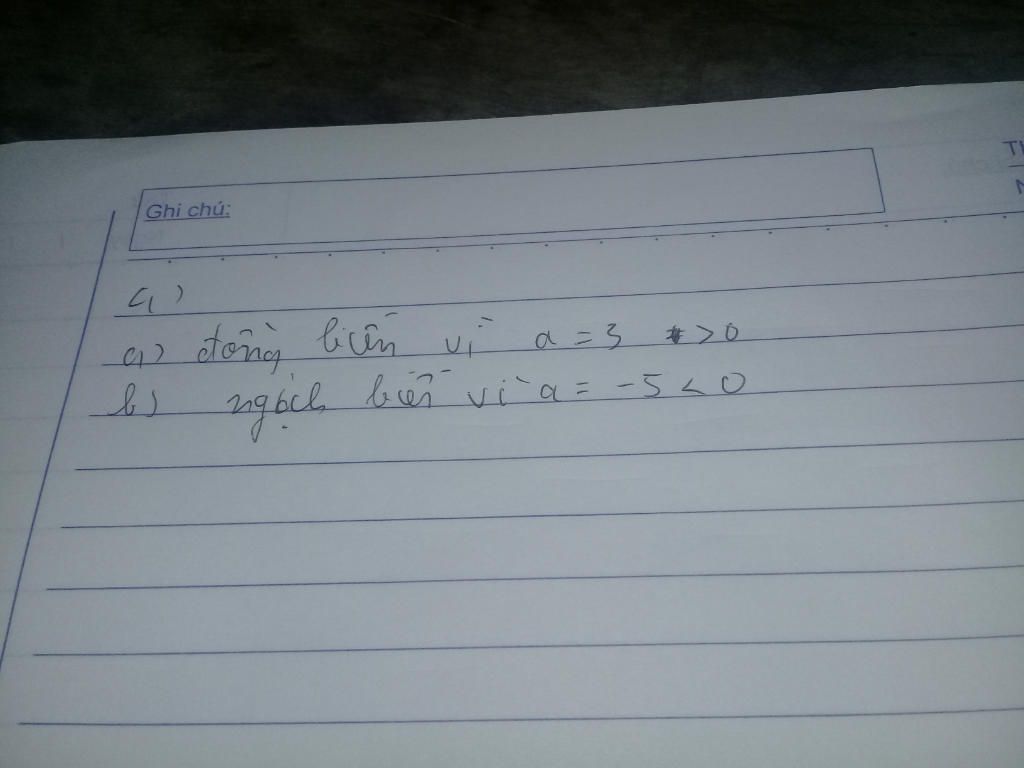 Ghi chú:
Th
N
C1)
a) đồng biến vì a = 3 > 0
b) nghịch biến vì a = -5 < 0